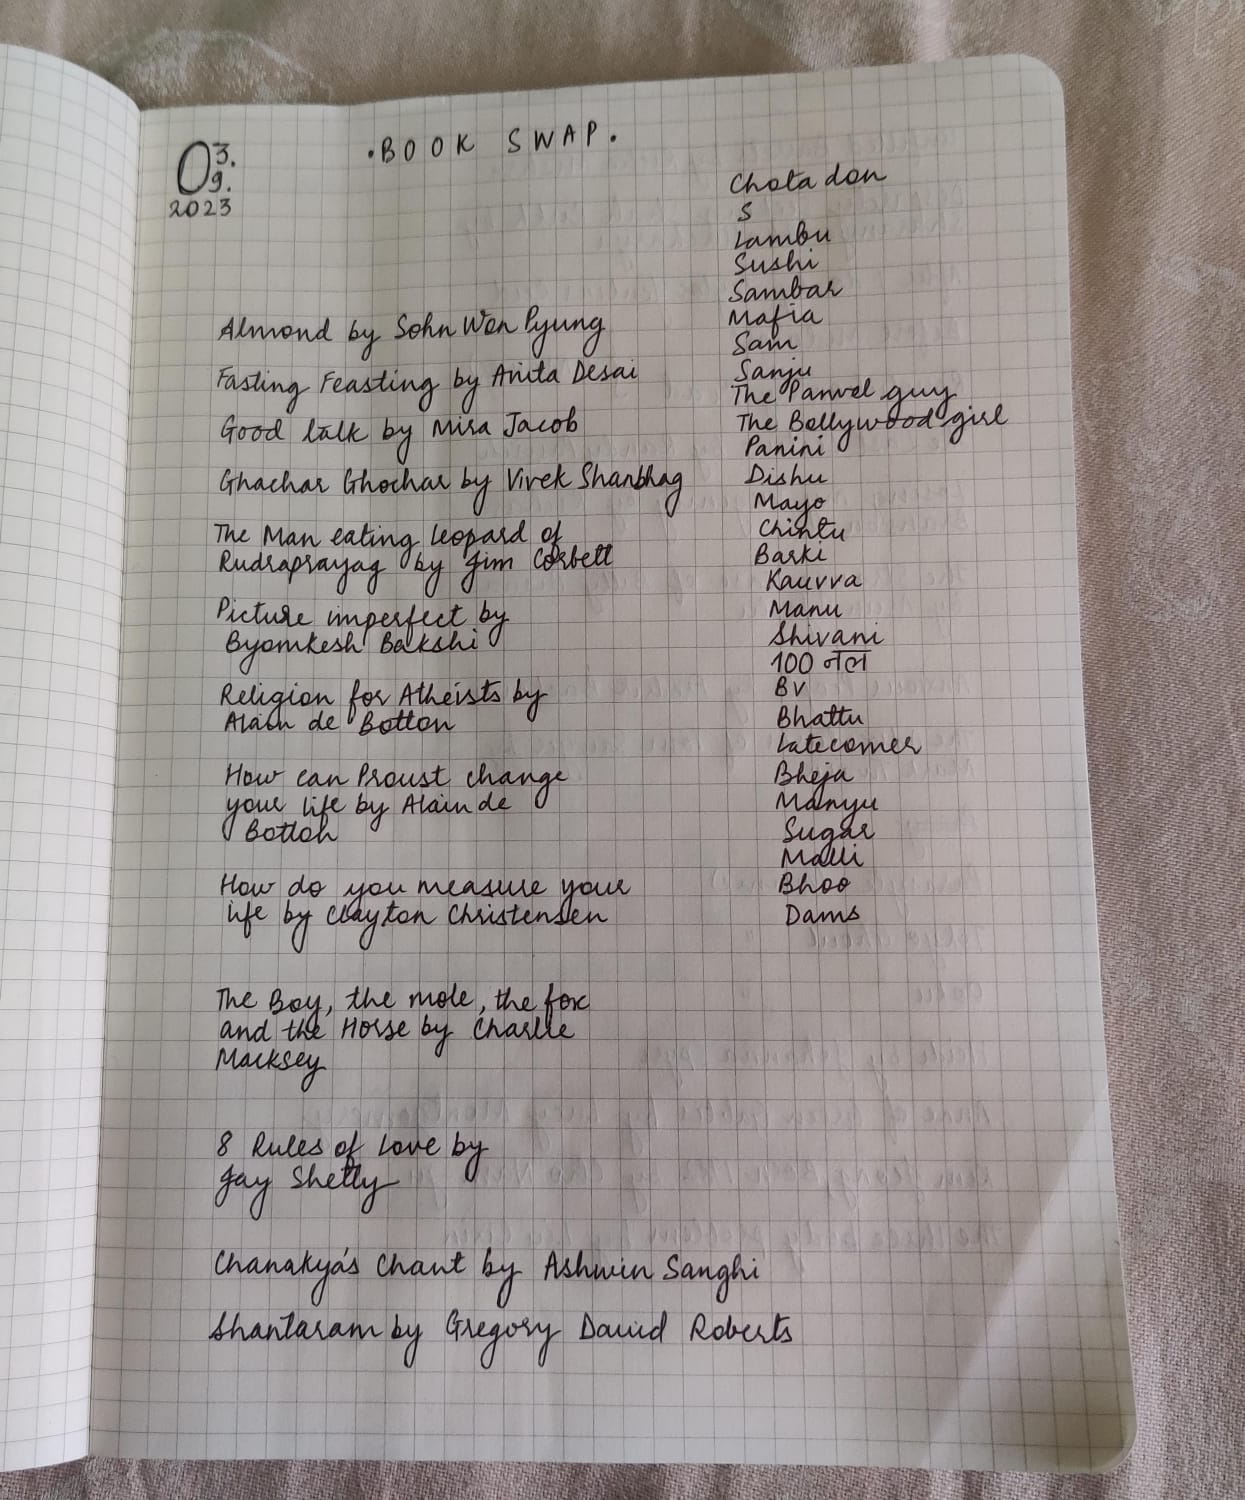 03.
9.
2023
·BOOK SWAP·
Almond by Sohn Won Pyung
Fasting Feasting by Anita Desai
Good talk by Mira Jacob
Ghachar Ghochar by Vivek Shanbhag
The Man eating leopard of
Rudraprayag by Jim Corbett
Picture imperfect by
Byomkesh Bakshi
Religion for Atheists by
Alain de Botton
How can Proust change
your life by Alain de
Botton
How do you measure your
life by Clayton Christensen
The Boy, the mole, the fox
and the Horse by Charlie
Macksey
8 Rules of Love by
Jay Shetty
Chanakya's Chant by Ashwin Sanghi
Shantaram by Gregory David Roberts
Chota don
S
Lambu
Sushi
Sambar
Mafia
Sam
Sanju
The Panvel guy
The Bollywood girl
Panini
Dishu
Mayo
Chintu
Barki
Kauvva
Manu
Shivani
100
BV
Bhattu
Latecomer
Bheja
Manyu
Sugar
Malli
Bhoo
Dams